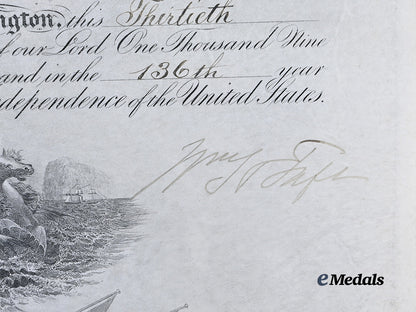 ngton, this Thirtieth
of our Lord One Thousand Nine
and in the 136th year
dependence of the United States.
Wm H Taft
eMedals